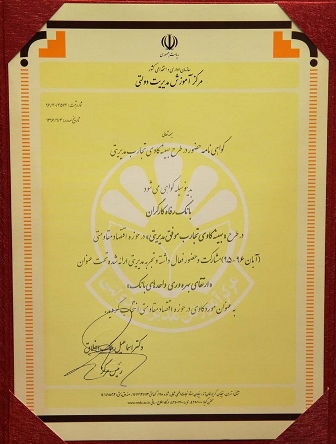 ریاست جمهوری
سازمان اداری و استخدامی کشور
مرکز آموزش مدیریت دولتی
گواهی نامه حضور در طرح بهینه کاوی تجارب مدیریتی
بدینوسیله گواهی می شود
بانک رفاه کارگران
در طرح «بهینه کاوی تجارب موفق مدیریتی» در حوزه اقتصاد مقاومتی
(آبان ۹۶-۹۵) مشارکت و حضور فعال داشته و تجربه مدیریتی ارائه شده تحت عنوان
«ارتقای بهره وری واحدهای بانک»
به عنوان مورد کاوی در حوزه اقتصاد مقاومتی انتخاب گردید.
دکتر اسماعیل
رئیس مرکز